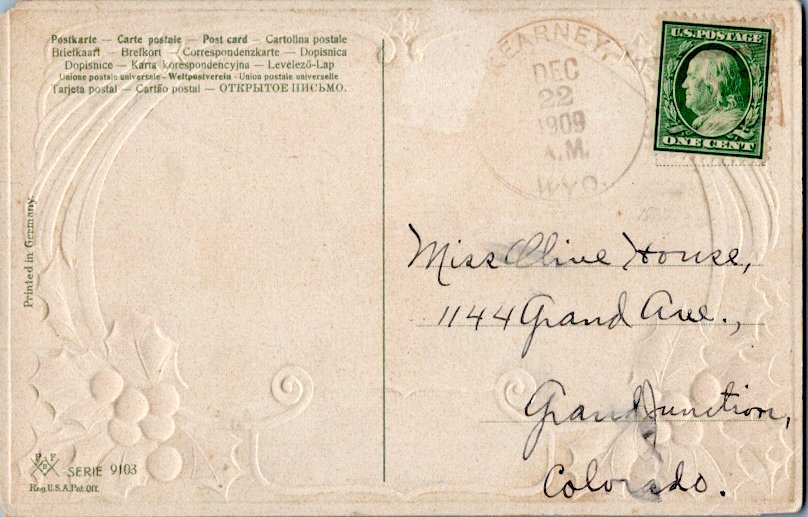 Postkarte — Carte postale — Post card — Cartolina postale
Briefkaart — Brefkort — Correspondenzkarte — Dopisnica
Dopisnice — Karta korespondencyjna — Levelező-Lap
Unione postale universale - Weltpostverein - Union postale universelle
Tarjeta postal — Cartão postal — ОТКРЫТОЕ ПИСЬМО.
KEARNEY,
DEC
22
1909
A.M.
WYO.
U.S.POSTAGE
ONE CENT
Printed in Germany.
Miss Olive House,
1144 Grand Ave.,
Grand Junction,
Colorado.
P F
B
SERIE 9103
Reg. U.S.A. Pat. Off.